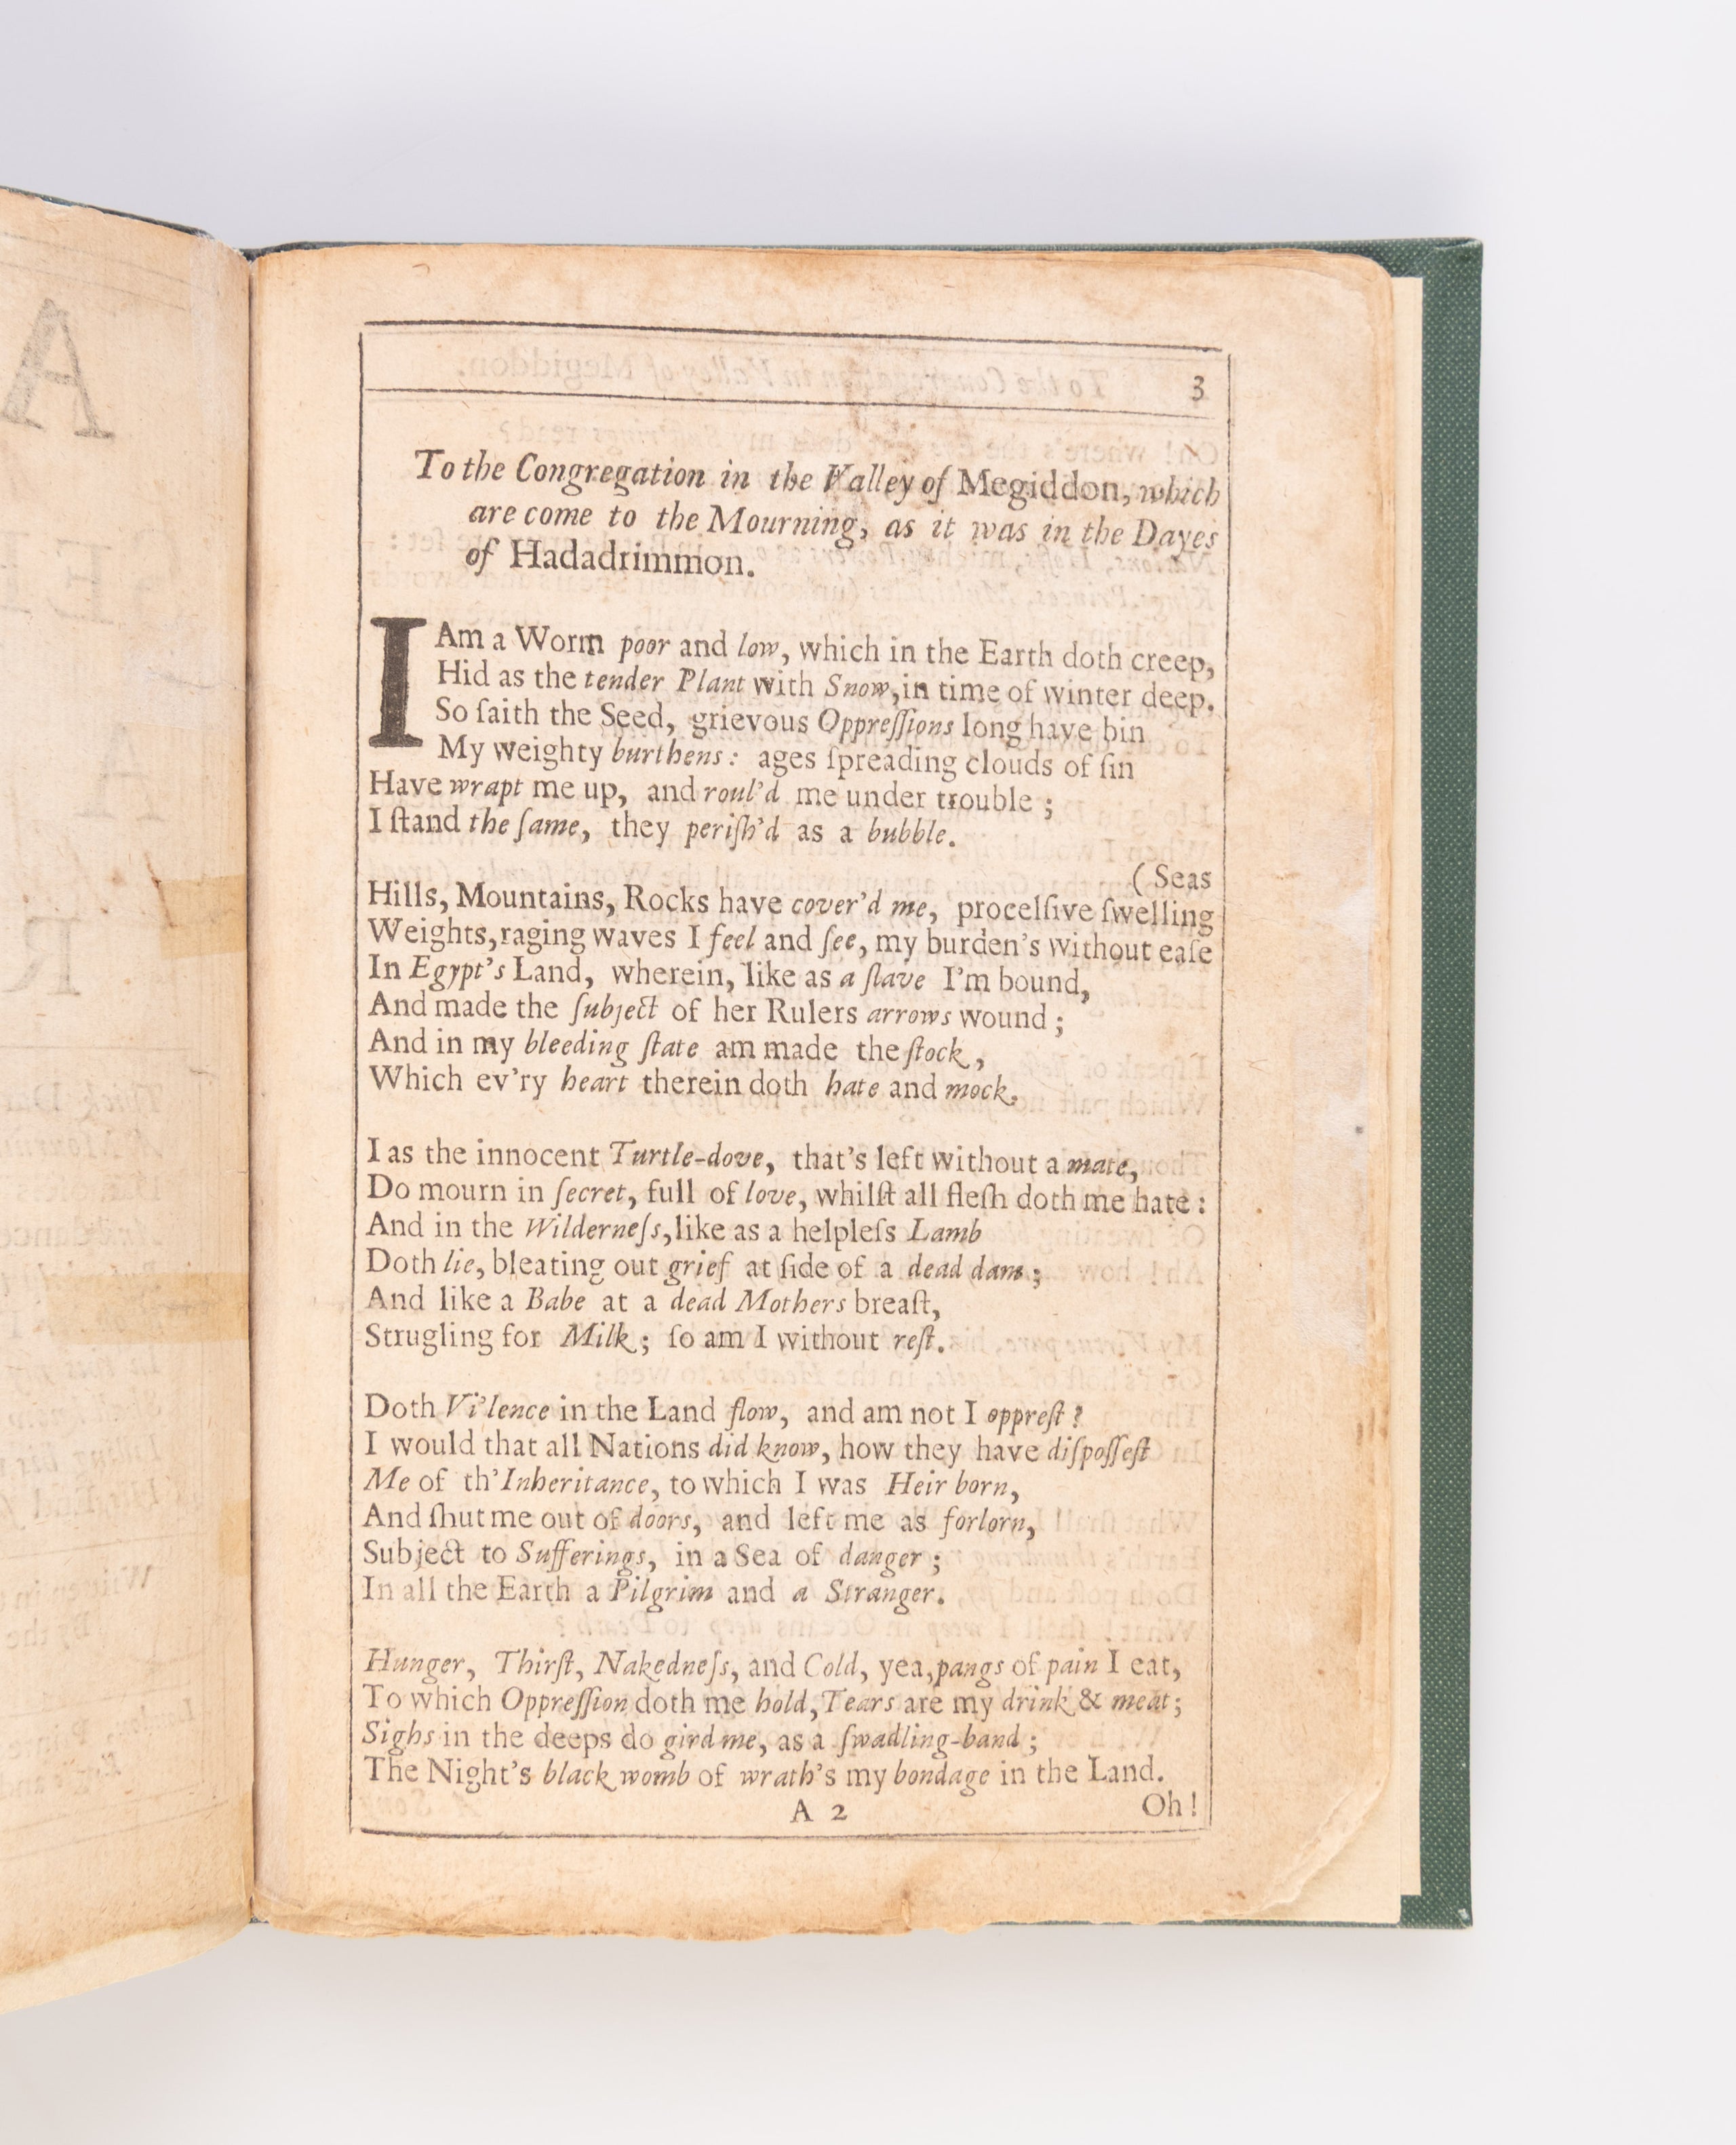 3
To the Congregation in the Valley of Megiddon, which
are come to the Mourning, as it was in the Dayes
of Hadadrimmon.
I Am a Worm poor and low, which in the Earth doth creep,
Hid as the tender Plant with Snow, in time of winter deep.
So ſaith the Seed, grievous Oppreſſions long have bin
My weighty burthens: ages ſpreading clouds of ſin
Have wrapt me up, and roul'd me under trouble;
I ſtand the ſame, they periſh'd as a bubble.
(Seas
Hills, Mountains, Rocks have cover'd me, procelſive ſwelling
Weights, raging waves I feel and ſee, my burden's without eaſe
In Egypt's Land, wherein, like as a ſlave I'm bound,
And made the ſubject of her Rulers arrows wound;
And in my bleeding ſtate am made the ſtock,
Which ev'ry heart therein doth hate and mock.
I as the innocent Turtle-dove, that's left without a mate,
Do mourn in ſecret, full of love, whilſt all fleſh doth me hate:
And in the Wilderneſs, like as a helpleſs Lamb
Doth lie, bleating out grief at ſide of a dead dam;
And like a Babe at a dead Mothers breaſt,
Strugling for Milk; ſo am I without reſt.
Doth Vi'lence in the Land flow, and am not I oppreſt?
I would that all Nations did know, how they have diſpoſſeſt
Me of th'Inheritance, to which I was Heir born,
And ſhut me out of doors, and left me as forlorn,
Subject to Sufferings, in a Sea of danger;
In all the Earth a Pilgrim and a Stranger.
Hunger, Thirſt, Nakedneſs, and Cold, yea, pangs of pain I eat,
To which Oppreſſion doth me hold, Tears are my drink & meat;
Sighs in the deeps do gird me, as a ſwadling-band;
The Night's black womb of wrath's my bondage in the Land.
A 2 Oh!